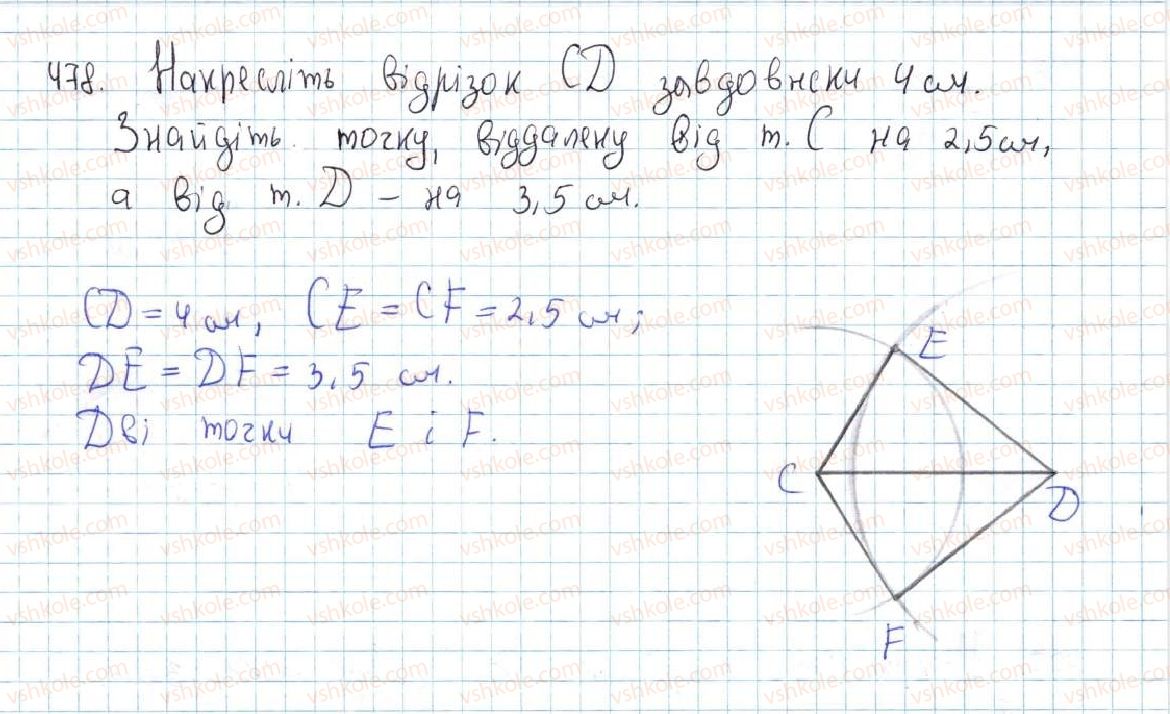 478. Накресліть відрізок CD завдовжки 4 см.
Знайдіть точку, віддалену від т. C на 2,5 см,
а від т. D – на 3,5 см.
CD = 4 см, CE = CF = 2,5 см;
DE = DF = 3,5 см.
Дві точки E і F.
E
C
D
F
vshkole.com